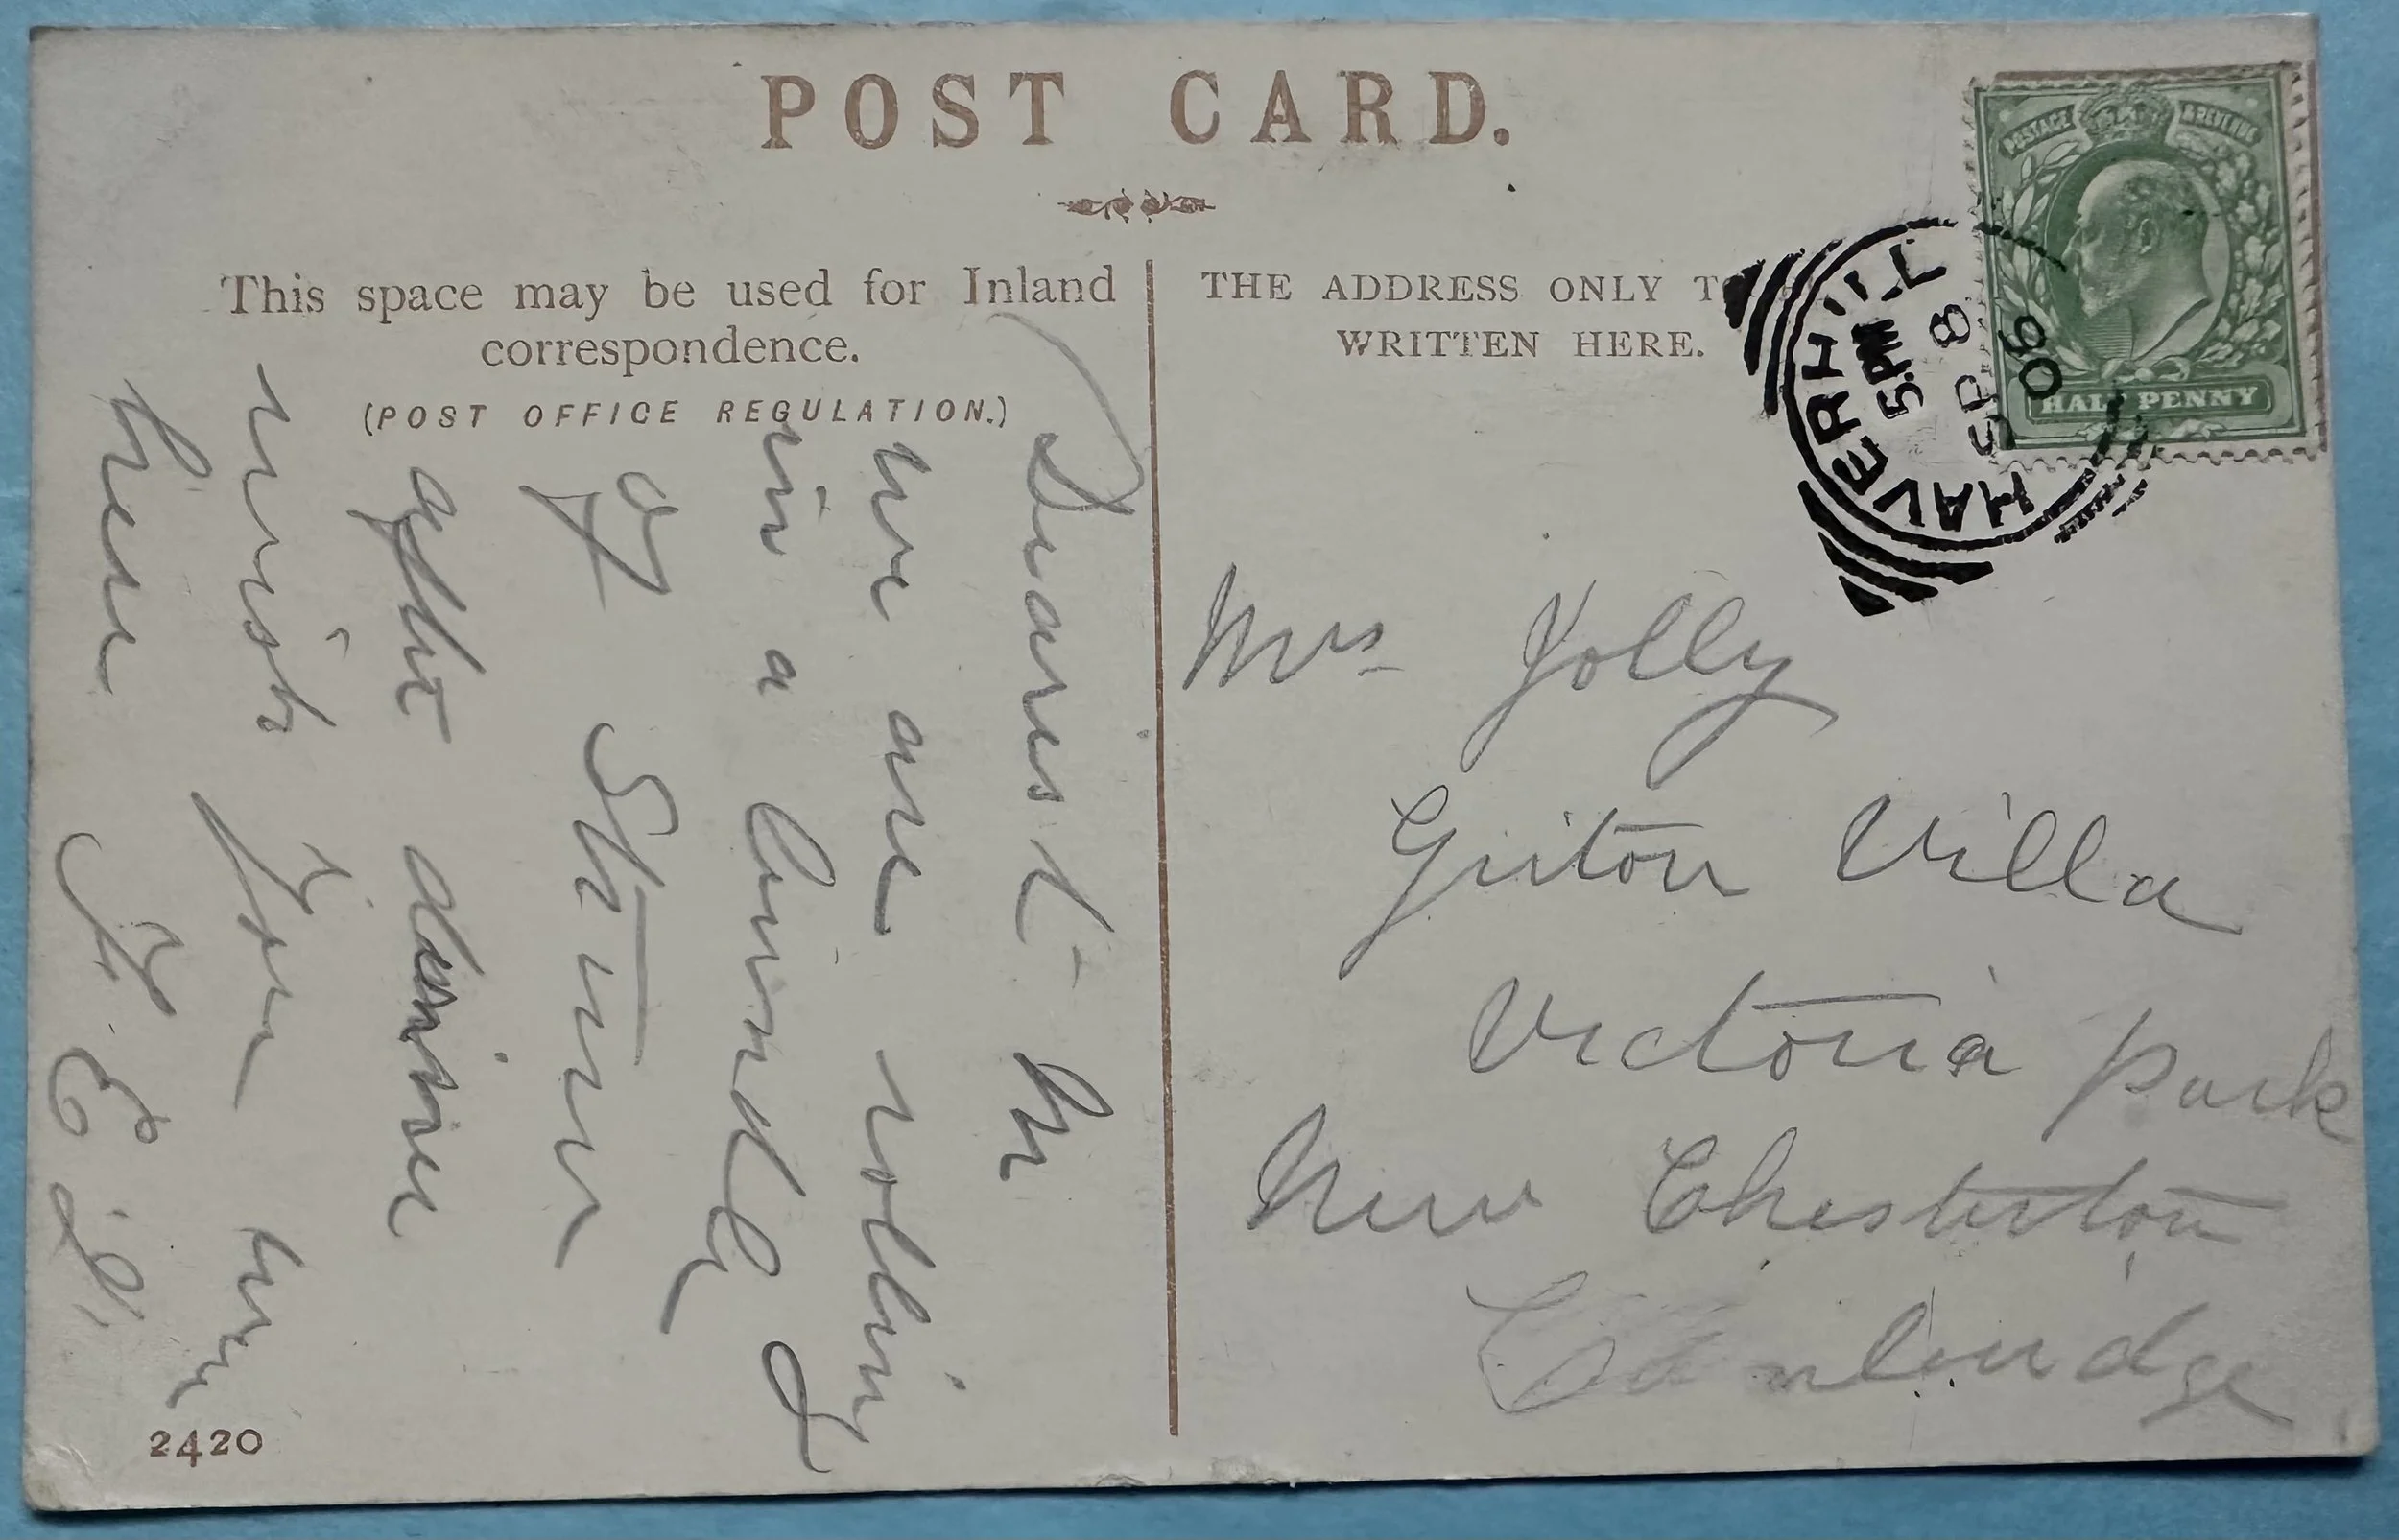 POST CARD.
This space may be used for Inland
correspondence.
(POST OFFICE REGULATION.)
THE ADDRESS ONLY TO
WRITTEN HERE.
POSTAGE & REVENUE
HALF PENNY
HAVERHILL
5.PM
SP 8
06
Dearest
we are rolling
in a bundle
of Stour
after dinner
wish you were
here J E J.
Mrs Jolly
Girton Villa
Victoria Park
New Chesterton
Cambridge
2420